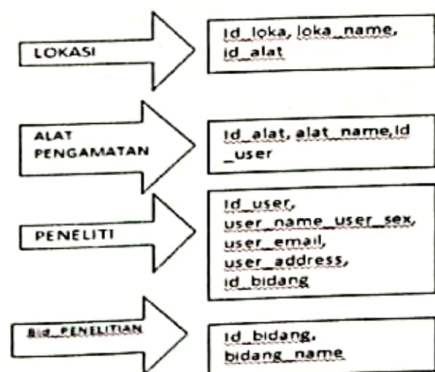 LOKASI
Id_loka, loka_name,
id_alat
ALAT
PENGAMATAN
Id_alat, alat_name,Id
_user
PENELITI
Id_user,
user_name_user_sex,
user_email,
user_address,
id_bidang
Bid_PENELITIAN
Id_bidang,
bidang_name